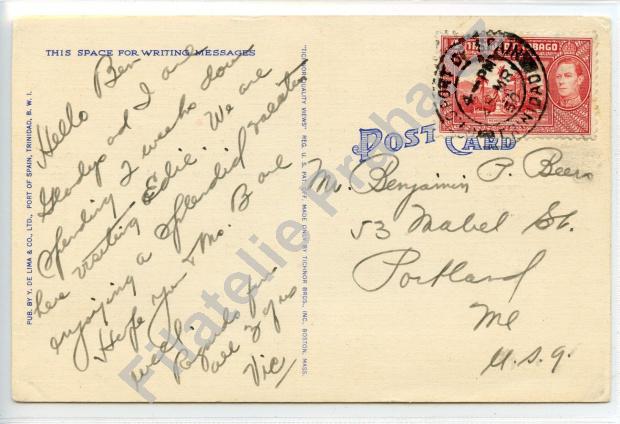 THIS SPACE FOR WRITING MESSAGES
Hello Ben
Gladys and I are
spending 2 weeks down
here visiting Edie. We are
enjoying a splendid vacation
Hope you & Mrs. B are
well.
Regards from
all of us
Vic
PUB. BY Y. DE LIMA & CO., LTD., PORT OF SPAIN, TRINIDAD, B. W. I.
"TICHNOR QUALITY VIEWS" REG. U. S. PAT. OFF. MADE ONLY BY TICHNOR BROS., INC., BOSTON, MASS.
POST CARD
PORT OF SPAIN
TRINIDAD
PM
MR
BAGO
Mr. Benjamin P. Beers
53 Mabel St.
Portland
Me
U.S.A.
Filatelie Prishazet